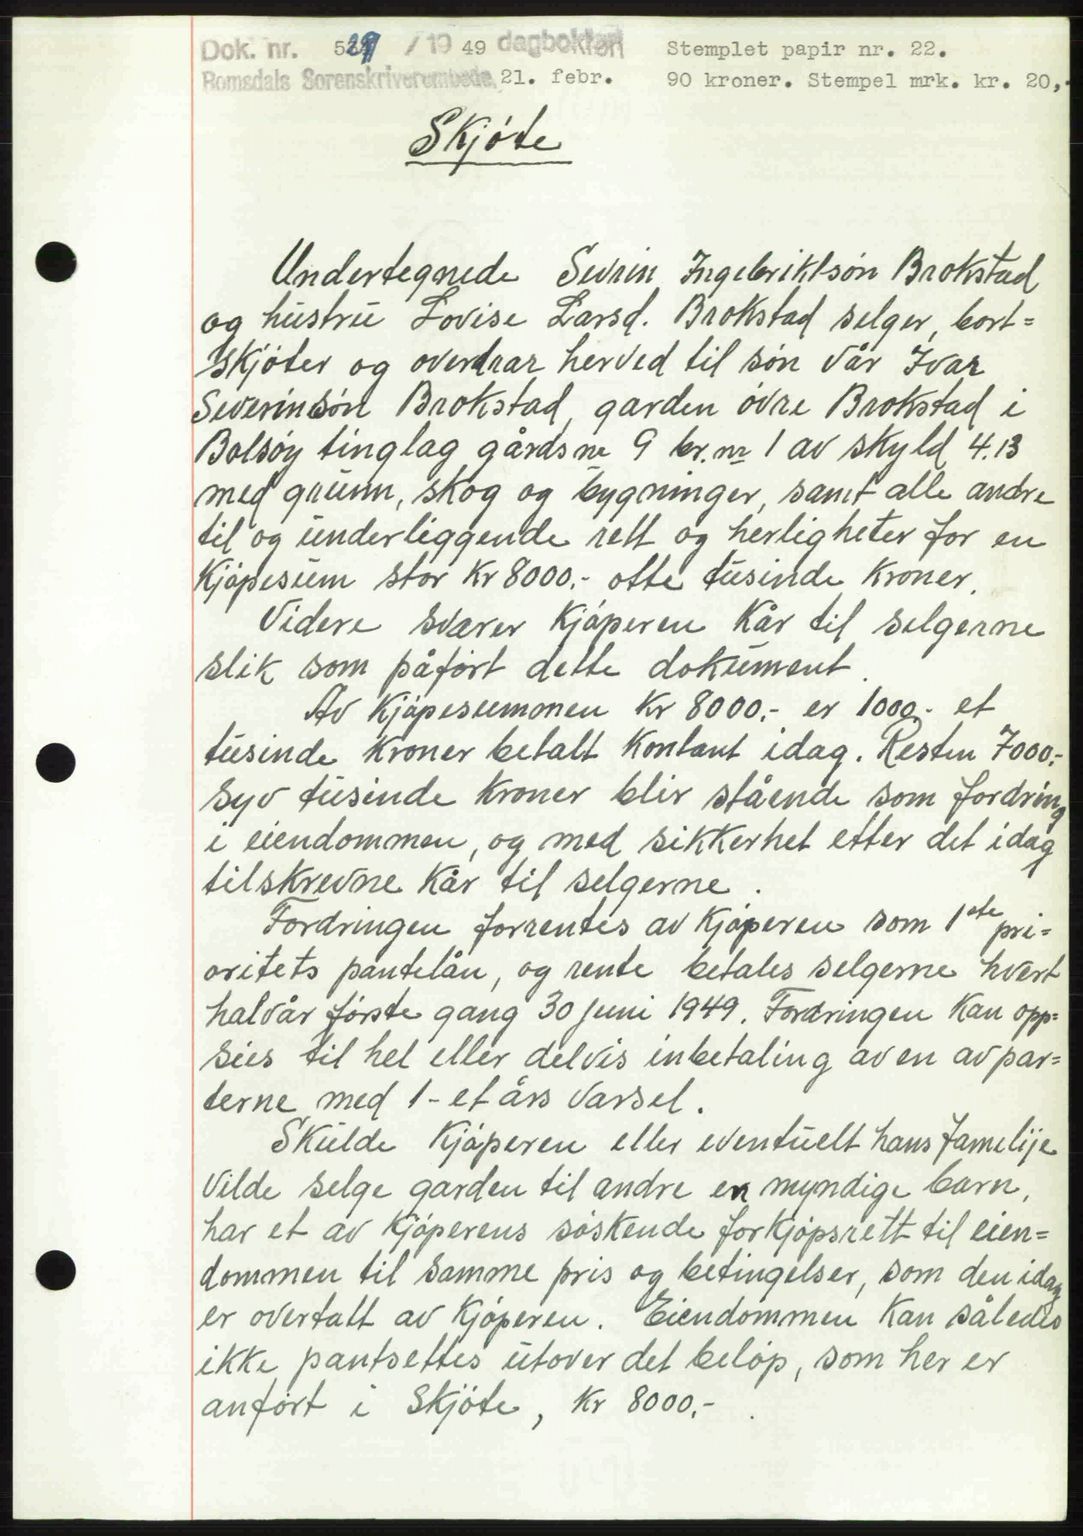 Dok. nr. 529 / 19 49 dagbokført Stemplet papir nr. 22.
Romsdals Sorenskriverembede, 21. febr. 90 kroner. Stempel mrk. kr. 20,-
Skjøte
Undertegnede Sevrin Ingebriktsøn Brokstad
og hustru Lovise Larsd. Brokstad selger, bort=
skjøter og overdrar herved til søn vår Ivar
Severinsøn Brokstad, garden øvre Brokstad i
Bolsøy tinglag gårdsnr 9 br. nr 1 av skyld 4.13
med grunn, skog og bygninger, samt alle andre
til og underliggende rett og herligheter for en
kjøpesum stor kr 8000.- otte tusinde kroner.
Videre svarer kjøperen kår til selgerne
slik som påført dette dokument.
Av kjøpesummen kr 8000.- er 1000.- et
tusinde kroner betalt kontant idag. Resten 7000.-
syv tusinde kroner blir stående som fordring
i eiendommen, og med sikkerhet etter det idag
tilskrevne kår til selgerne.
Fordringen forrentes av kjøperen som 1ste pri=
oritets pantelån, og rente betales selgerne hvert
halvår første gang 30 juni 1949. Fordringen kan opp=
sies til hel eller delvis inbetaling av en av par=
terne med 1- et års varsel.
Skulde kjøperen eller eventuelt hans famelije
vilde selge garden til andre en myndige barn,
har et av kjøperens søskende forkjøpsrett til eien=
dommen til samme pris og betingelser, som den idag
er overtatt av kjøperen. Eiendommen kan således
ikke pantsettes utover det beløp, som her er
anført i skjøte, kr 8000.-